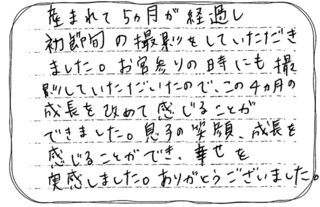 産まれて5ヵ月が経過し
初節句の撮影をしていただき
ました。お宮参りの時にも撮
影していただいたので、この4ヵ月の
成長を改めて感じることが
できました。息子の笑顔、成長を
感じることができ、幸せを
実感しました。ありがとうございました。